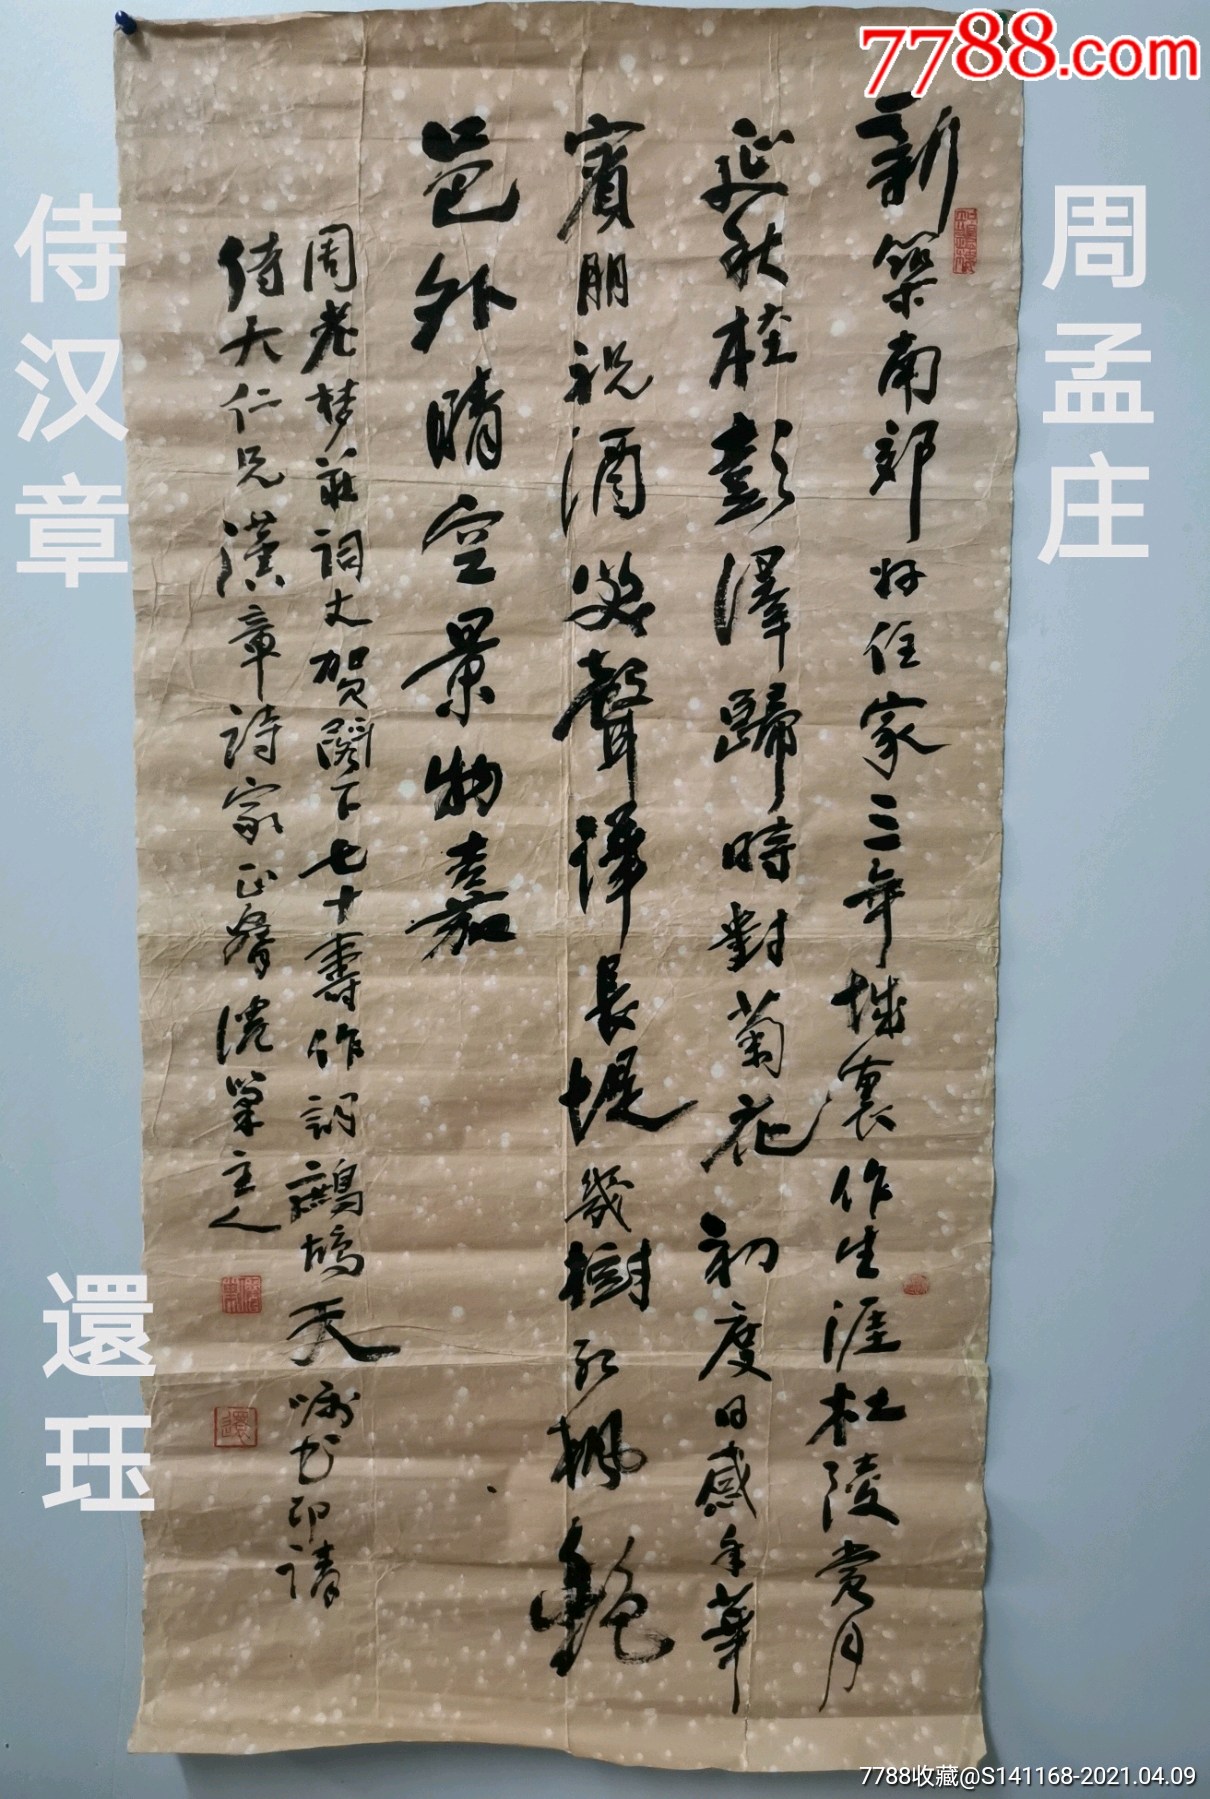 7788.com
新築南郊好住家三年城裏作生涯杜陵賞月
延秋桂彭澤歸時對菊花初度日感年華
賓朋祝酒笑聲譁長堤幾樹紅楓艷
邑外晴空景物嘉
周老梦莊詞丈賀閣下七十壽作詞鷓鴣天嘱书即請
侍大仁兄漢章詩家正 主人
還
周孟庄
侍汉章
還珏
7788收藏@S141168-2021.04.09